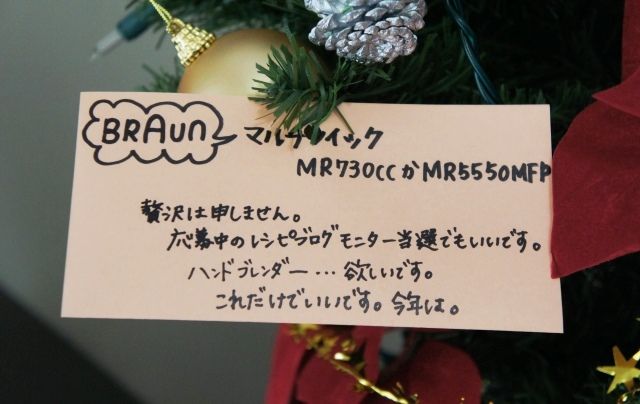 BRAun マルチクイック
MR730CCかMR5550MFP
贅沢は申しません。
応募中のレシピブログモニター当選でもいいです。
ハンドブレンダー…欲しいです。
これだけでいいです。今年は。